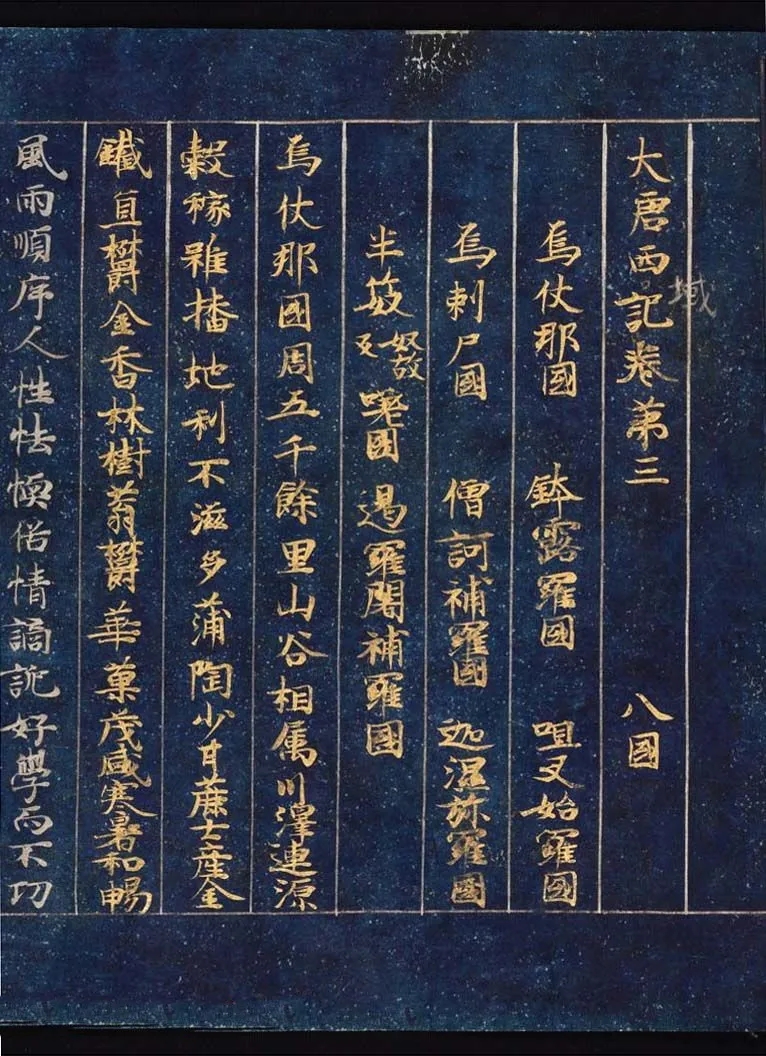 大唐西域記卷第三 八國
烏仗那國 鉢露羅國 呾叉始羅國
烏剌尸國 僧訶補羅國 迦濕弥羅國
半笯奴故反嗟國 遏羅闍補羅國
烏仗那國周五千餘里山谷相属川澤連源
穀稼雖播地利不滋多蒲陶少甘蔗土産金
鐵宜欝金香林樹蓊欝華菓茂盛寒暑和暢
風雨順序人性怯愞俗情譎詭好學而不功